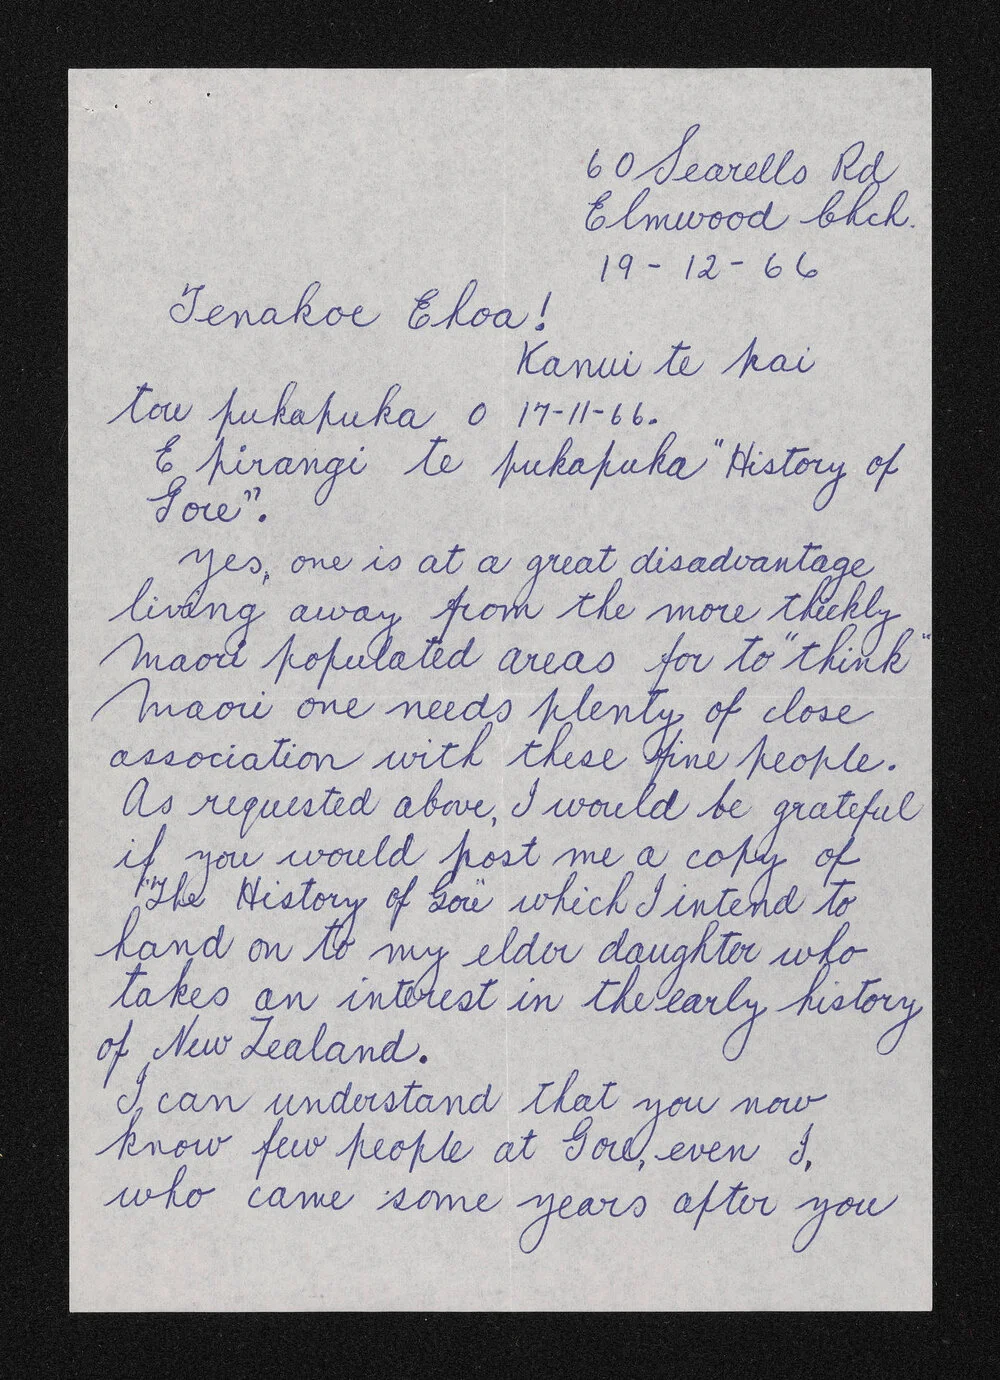 60 Searells Rd
Elmwood Chch.
19 - 12 - 66
Tenakoe Ehoa!
Kanui te pai
tou pukapuka o 17-11-66.
E pirangi te pukapuka "History of
Gore".
Yes, one is at a great disadvantage
living away from the more thickly
Maori populated areas for to "think"
Maori one needs plenty of close
association with these fine people.
As requested above, I would be grateful
if you would post me a copy of
"The History of Gore" which I intend to
hand on to my elder daughter who
takes an interest in the early history
of New Zealand.
I can understand that you now
know few people at Gore, even I,
who came some years after you